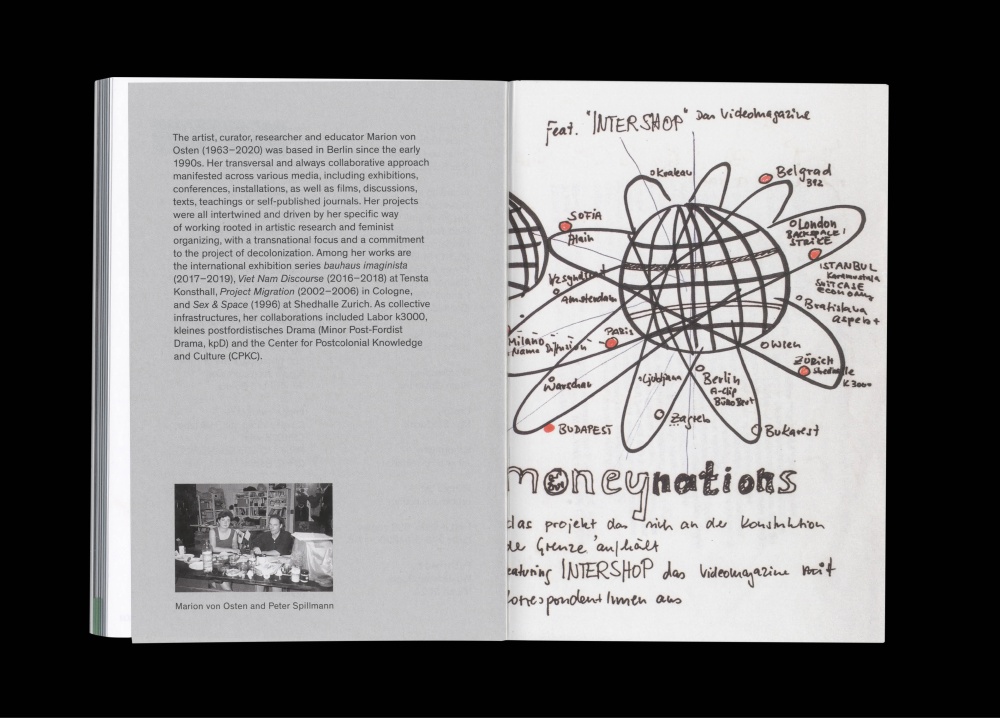 The artist, curator, researcher and educator Marion von
Osten (1963–2020) was based in Berlin since the early
1990s. Her transversal and always collaborative approach
manifested across various media, including exhibitions,
conferences, installations, as well as films, discussions,
texts, teachings or self-published journals. Her projects
were all intertwined and driven by her specific way
of working rooted in artistic research and feminist
organizing, with a transnational focus and a commitment
to the project of decolonization. Among her works are
the international exhibition series bauhaus imaginista
(2017–2019), Viet Nam Discourse (2016–2018) at Tensta
Konsthall, Project Migration (2002–2006) in Cologne,
and Sex & Space (1996) at Shedhalle Zurich. As collective
infrastructures, her collaborations included Labor k3000,
kleines postfordistisches Drama (Minor Post-Fordist
Drama, kpD) and the Center for Postcolonial Knowledge
and Culture (CPKC).
Marion von Osten and Peter Spillmann
Feat. "INTERSHOP" Das Videomagazine
Krakau
Belgrad
SOFIA
London
BACKSPACE/
STRIKE
ISTANBUL
SUITCASE
ECONOMY
Amsterdam
Bratislava
PARIS
Milano
Wien
ZÜRICH
Shedhalle
K3000
Warschau
Ljubljana
Berlin
A-Clip
BüroBert
Zagreb
BUDAPEST
Bukarest
moneynations
das projekt das sich an der Konstruktion
der Grenze aufhält
eaturing INTERSHOP das Videomagazine mit
KorrespondentInnen aus